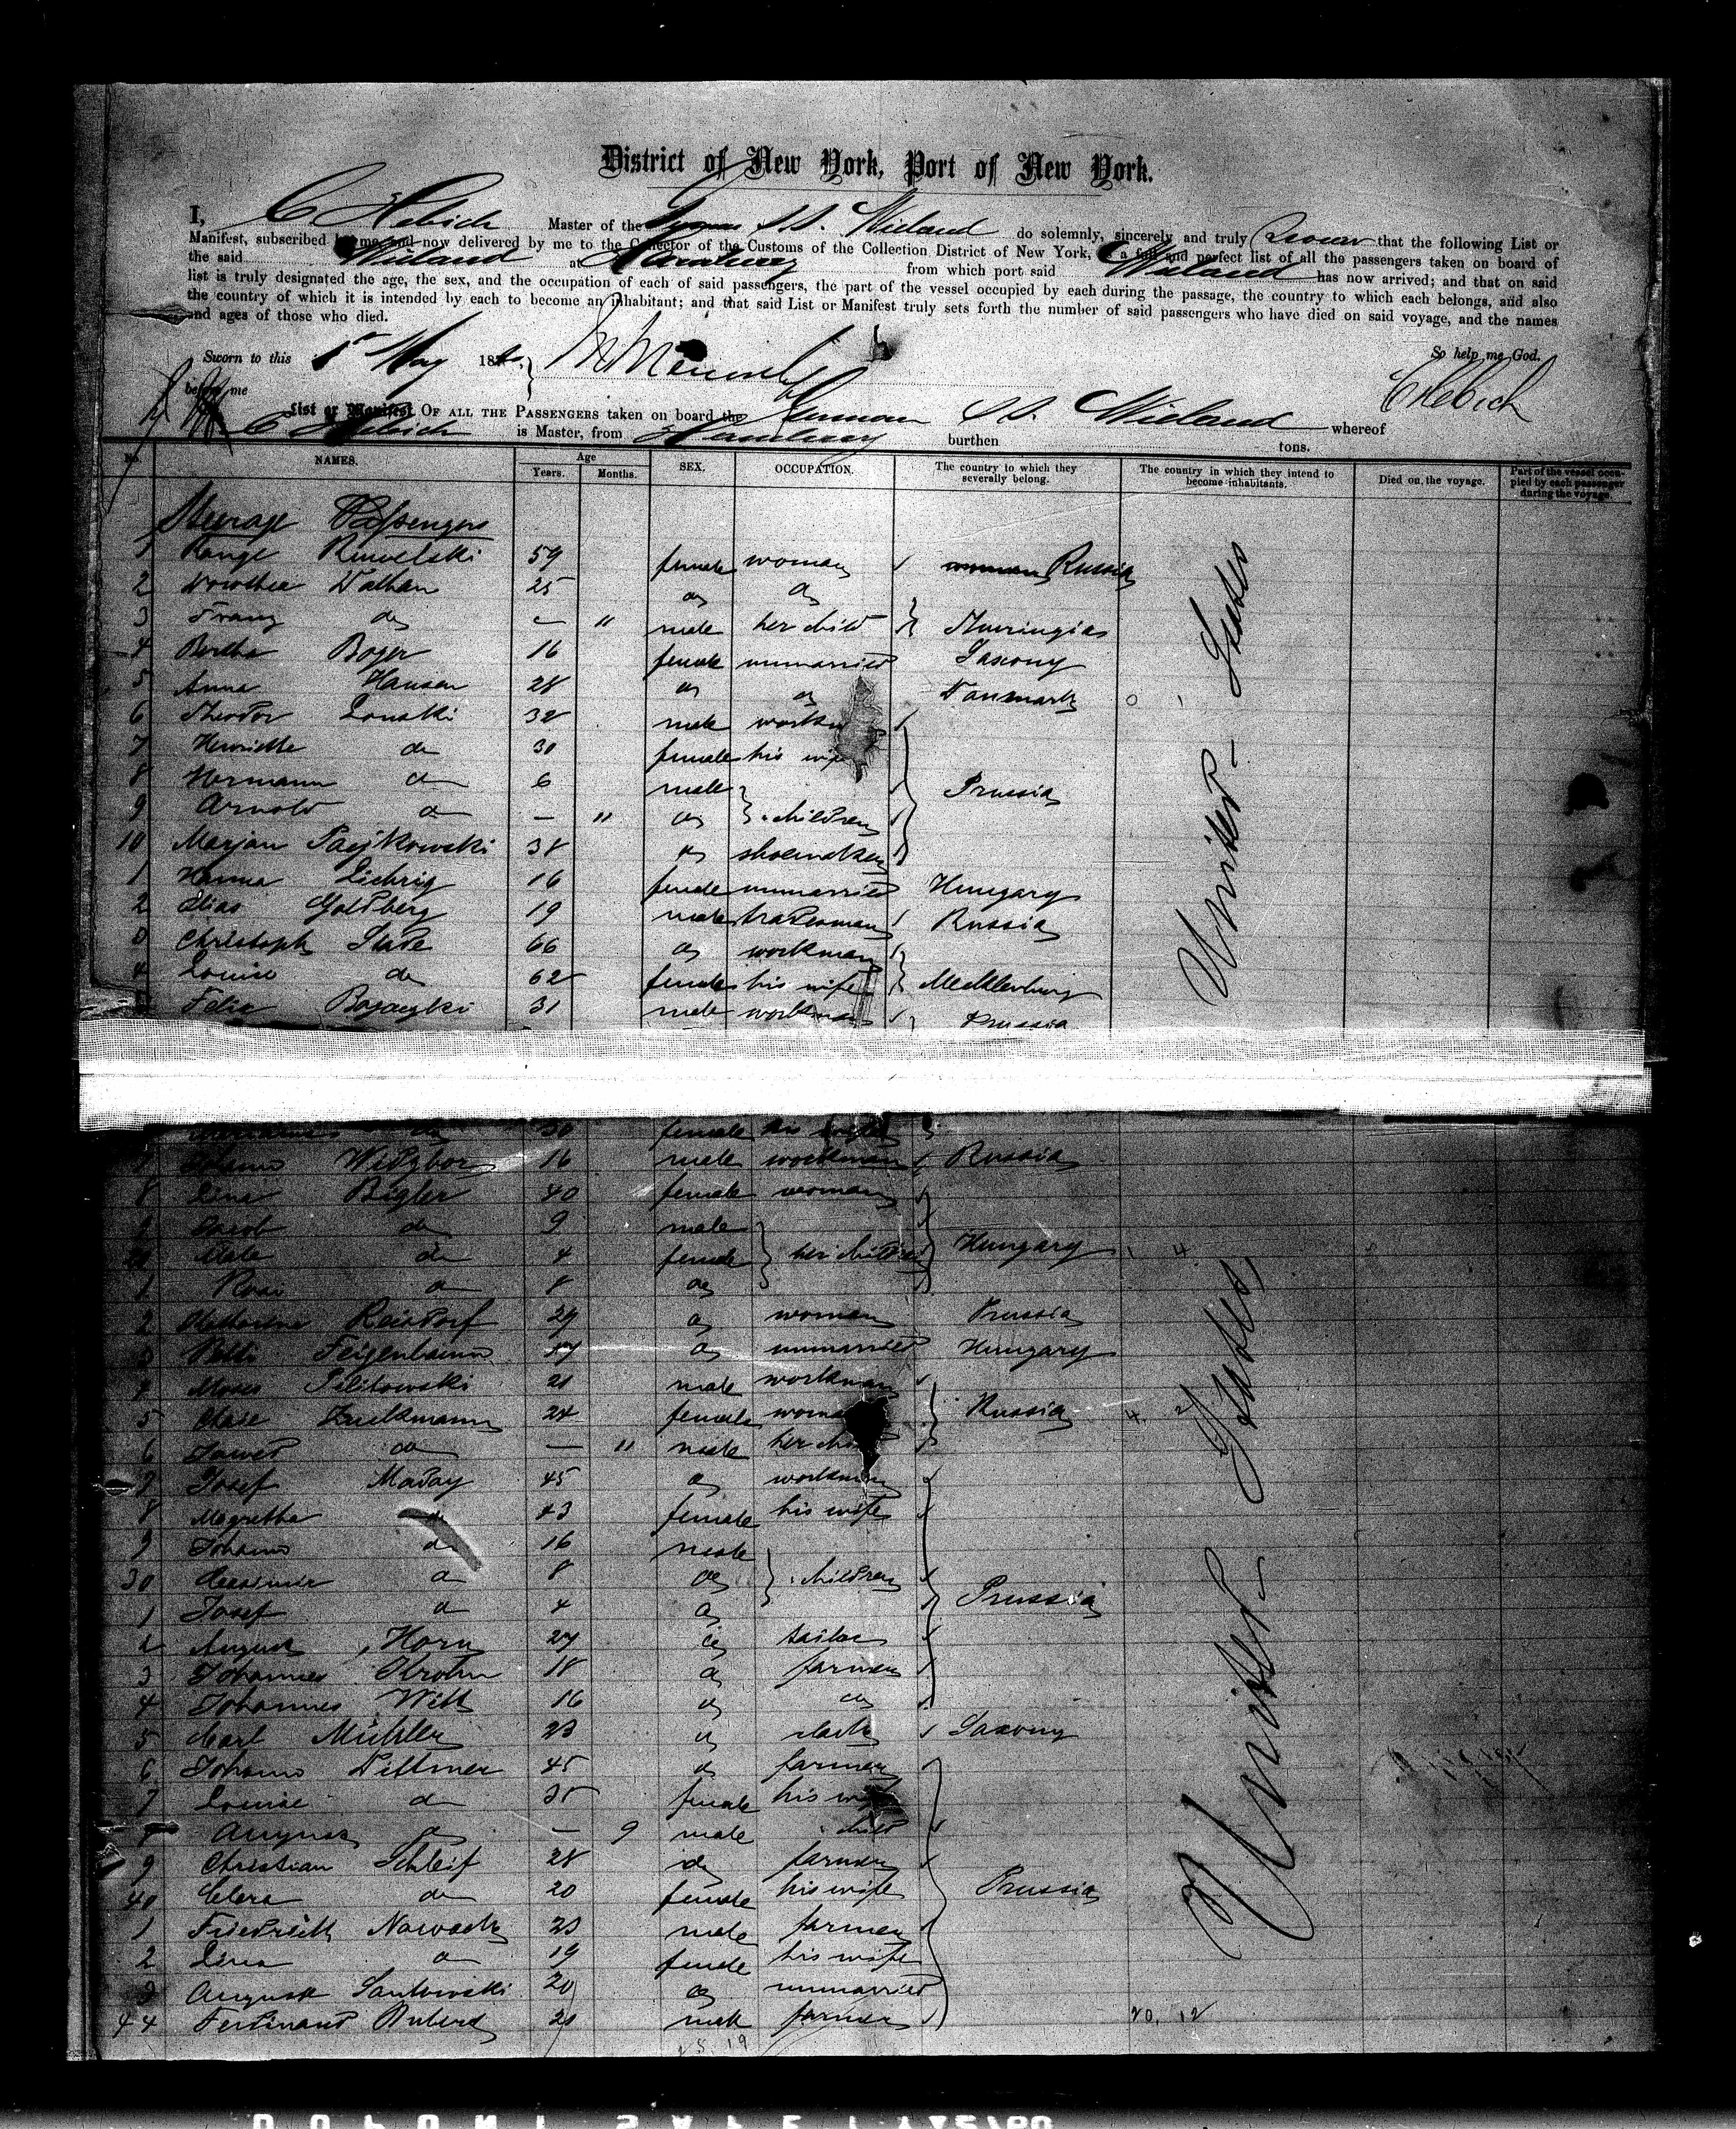 District of New York, Port of New York.
I, C Hebich Master of the German S.S. Wieland do solemnly, sincerely and truly Swear that the following List or
Manifest, subscribed by me, and now delivered by me to the Collector of the Customs of the Collection District of New York, is a full and perfect list of all the passengers taken on board of
the said Wieland at Hamburg from which port said Wieland has now arrived; and that on said
list is truly designated the age, the sex, and the occupation of each of said passengers, the part of the vessel occupied by each during the passage, the country to which each belongs, and also
the country of which it is intended by each to become an inhabitant; and that said List or Manifest truly sets forth the number of said passengers who have died on said voyage, and the names
and ages of those who died.
So help me God.
Sworn to this May 188
before me
C Hebich
List or Manifest OF ALL THE PASSENGERS taken on board the German S.S. Wieland whereof
C Hebich is Master, from Hamburg burthen tons.
No. NAMES. Age Years. Months. SEX. OCCUPATION. The country to which they severally belong. The country in which they intend to become inhabitants. Died on the voyage. Part of the vessel occupied by each passenger during the voyage.
Steerage Passengers
United States
1 59 female woman Russia
2 Dorothea Nathan 25 do do
3 Franz do — " male her child Thueringia
4 Bertha Boyer 16 female unmarried Saxony
5 Anna Hansen 28 do do Danmark
6 Theodor Lonski 32 male workman
7 Henriette do 30 female his wife
8 Hermann do 6 male Prussia
9 Arnold do — " do children
10 Marjan Pajkowski 38 do shoemaker
1 Hanna Liebrig 16 female unmarried Hungary
2 Elias Goldberg 19 male tradesman Russia
3 Christoph Stade 66 do workman
4 Louise do 62 female his wife Mecklenburg
Felix 31 male workman Prussia
do 30 female his wife
Johann 16 male workman Russia
8 Lina Bigler 40 female woman
9 Jacob do 9 male
20 do 4 female her children Hungary
1 Rosi do 8 do
2 Katharina Reisdorf 29 do woman Prussia
3 Betti Feigenbaum 17 do unmarried Hungary
4 Moses 21 male workman
5 Chase Zuckmann 24 female woman Russia
6 do — " male her child
7 Josef Maday 45 do workman
8 Magretha do 43 female his wife
9 Johann do 16 male
30 Casimir do 8 do children
1 Josef do 4 do Prussia
2 August Horn 27 do tailor
3 Johannes Krohn 18 do farmer
4 Johannes Witt 16 do do
5 Carl Mühler 23 do clerk Saxony
6 Johann Dittmer 45 do farmer
7 Louise do 35 female his wife
8 August do — 9 male child
9 Christian Schleif 28 do farmer
40 Clara do 20 female his wife Prussia
1 Friedrich Nowack 23 male farmer
2 Lina do 19 female his wife
3 August Santowski 20 do unmarried
44 Ferdinand 21 male farmer
United States